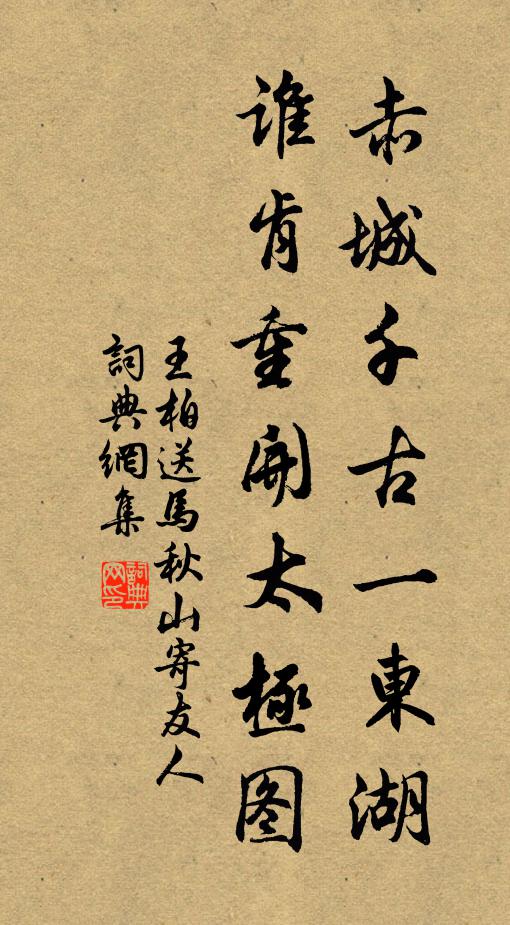 赤城千古一東湖
誰肯重開太極图
王柏送馬秋山寄友人
詞典網集
詞典网印